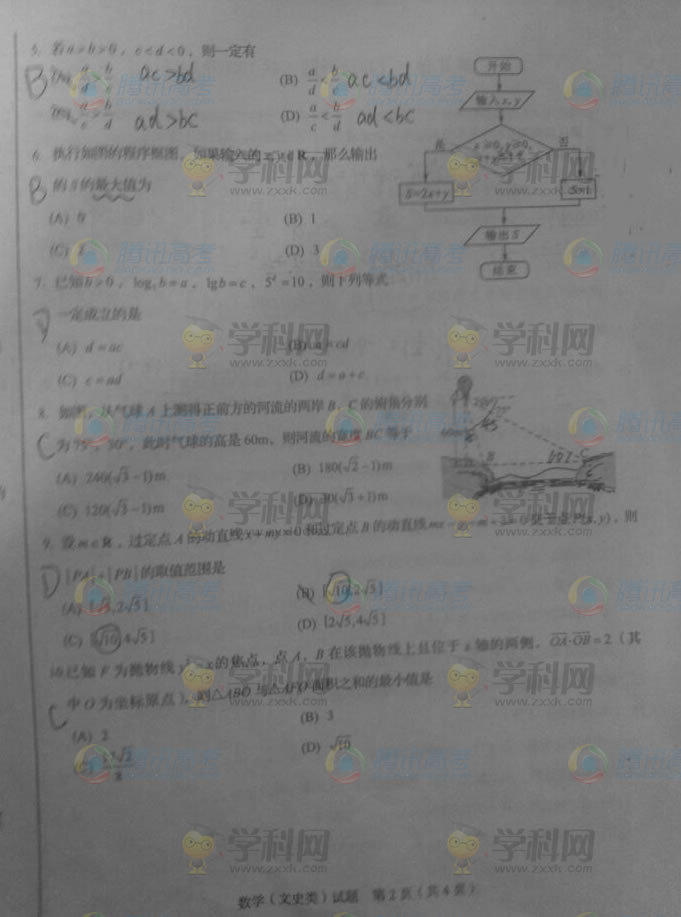 5. 若a>b>0，c<d<0，则一定有
B (A) a/d > b/c ac>bd (B) a/d < b/c ac<bd
a/c > b/d ad>bc (D) a/c < b/d ad<bc
6. 执行如图的程序框图，如果输入的x,y∈R，那么输出
B 的S的最大值为
(A) 0 (B) 1
(C) 2 (D) 3
开始
输入x, y
是
否
S=2x+y
S=1
输出S
结束
7. 已知b>0，log₅b=a，lgb=c，5ᵈ=10，则下列等式
一定成立的是
(A) d=ac (B) a=cd
(C) c=ad (D) d=a+c
8. 如图，从气球A上测得正前方的河流的两岸B，C的俯角分别
C 为75°，30°，此时气球的高是60m，则河流的宽度BC等于
(A) 240(√3-1)m (B) 180(√2-1)m
(C) 120(√3-1)m (D) 30(√3+1)m
60m
B
C
9. 设m∈R，过定点A的动直线x+my=0和过定点B的动直线mx-y-m+3=0交于点P(x,y)，则
D |PA|+|PB|的取值范围是
(A) [√5,2√5] (B) [√10,2√5]
(C) [√10,4√5] (D) [2√5,4√5]
10.已知F为抛物线y²=x的焦点，点A，B在该抛物线上且位于x轴的两侧，OA·OB=2（其
C 中O为坐标原点），则△ABO与△AFO面积之和的最小值是
(A) 2 (B) 3
(C) 17√2/8 (D) √10
数学（文史类）试题 第2页（共4页）
腾讯高考
学科网
www.zxxk.com